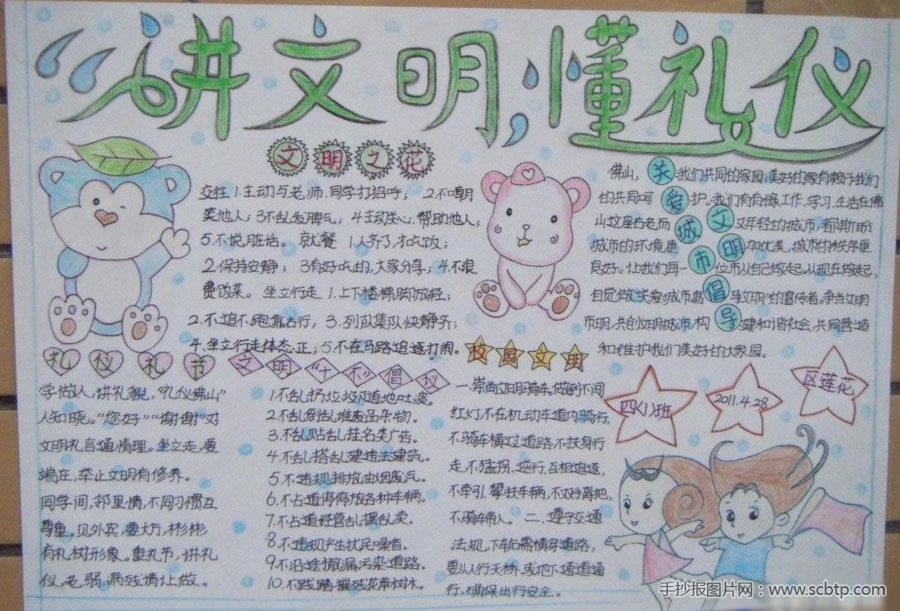 讲文明,懂礼仪
文明之花
交往 1.主动与老师、同学打招呼; 2.不嘲
笑他人; 3.不乱发脾气; 4.主动关心、帮助他人;
5.不说脏话。 就餐 1.人齐了才吃饭;
2.保持安静; 3.有好吃的,大家分享; 4.不浪
费饭菜。 坐立行走 1.上下楼梯脚放轻;
2.不追不跑靠右行, 3.列队集队快静齐;
4.坐立行走体态正; 5.不在马路追逐打闹。
佛山,关我们共同的家园,美好的家有赖于我们
的共同呵爱护。我们有
山这座古老而文年轻的城市,
城市的环境
良好。让我们每一位市从自己做起,从现在做起,
自觉做关爱城市倡导文明的宣传者,争当文明
市明,共创文明城市,构导建和谐社会,共同营造
和维护我们美好的大家园。
关爱城市文明倡导
礼仪礼节
学做人,讲礼貌,“礼仪佛山”
人知晓。“您好”“谢谢”对
文明礼言通情理。坐立走,要
端庄,举止文明有修养。
同学间,邻里情,不同习惯互
尊重。见外宾,要大方,彬彬
有礼树形象。重礼节,讲礼
仪,老、弱、病残情让做。
文明“十不”倡议
1.不乱扔垃圾随地吐痰。
2.不乱堆放杂物。
3.不乱贴乱挂各类广告。
4.不乱搭乱建违法建筑。
5.不违规排放油烟废气。
6.不占道停放各种车辆。
7.不占道经营乱摆乱卖。
8.不违规产生扰民噪音。
9.不沿途撒漏污染道路。
10.不践踏摧残花草树木。
校园文明
一.崇尚文明骑车,做到不闯
红灯,不在机动车道内骑行,
不骑车横过道路,不扶身行
走,不猛拐、逆行、互相追逐,
不牵引、攀扶车辆,不双手离把,
不骑车带人。 二、遵守交通
法规,下车后需横穿道路,
要从行人天桥、或地下通道通
行,确保出行安全。
四(1)班
2011.4.28
区莲花
手抄报图片网:www.scbtp.com